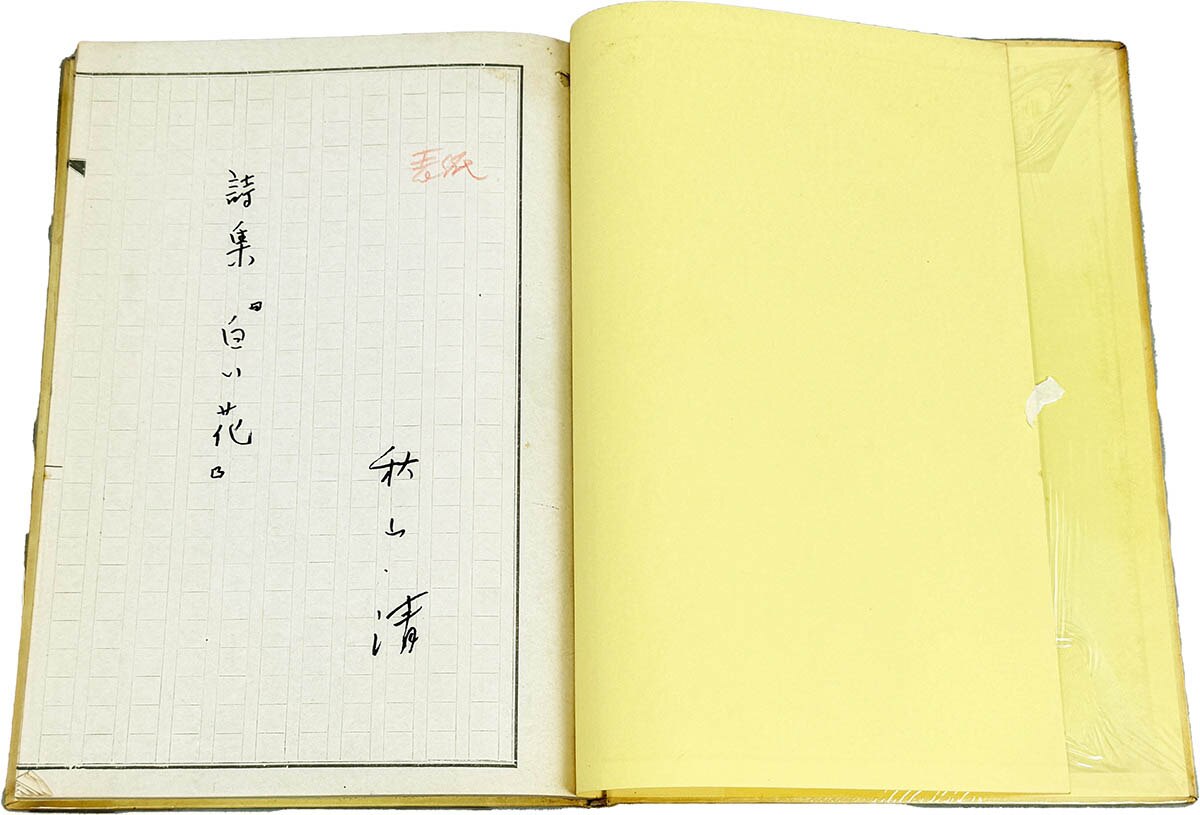 表紙
秋山清
詩集『白い花』